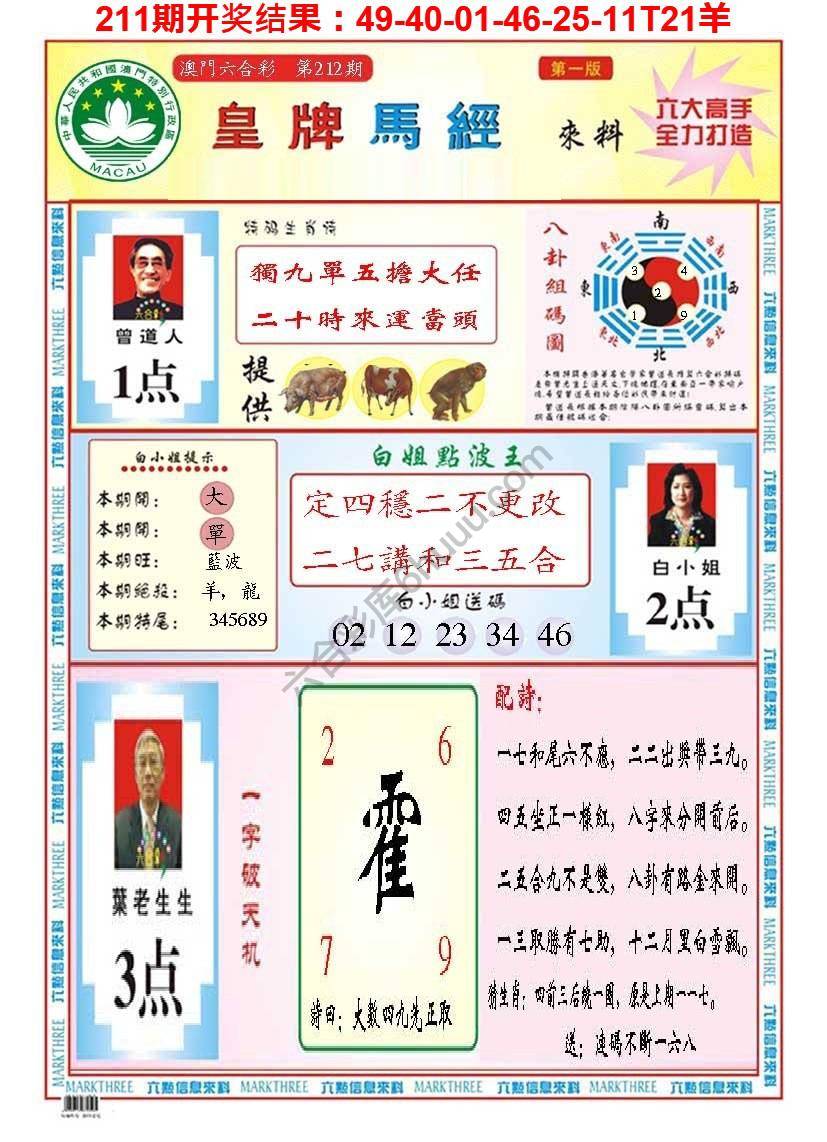 211期开奖结果：49-40-01-46-25-11T21羊
澳門六合彩 第212期
第一版
中華人民共和國澳門特別行政區
MACAU
皇牌馬經
來料
六大高手
全力打造
特码生肖诗
獨九單五擔大任
二十時來運當頭
提供
曾道人
1点
八卦組碼圖
南
東南
西南
東
西
東北
西北
北
3
4
2
1
9
白小姐提示
本期開：大
本期開：單
本期旺：藍波
本期絕殺：羊，龍
本期特尾：345689
白姐點波王
定四穩二不更改
二七講和三五合
白小姐送碼
02 12 23 34 46
白小姐
2点
六合彩库6huuu.com
葉老生生
3点
一字破天机
2
6
霍
7
9
詩曰：大數四九先正取
配詩：
一七和尾六不應，二二出與帶三九。
四五坐正一樣紅，八字來分開前后。
二五合九不是雙，八卦有路金來開。
一三取勝有七助，十二月黑白雪飄。
猜生肖：四前三后繞一圈，原是上期一一七。
送：連碼不斷一六八
MARKTHREE 六點信息來料 MARKTHREE 六點信息來料 MARKTHREE 六點信息來料 MARKTHREE 六點信息來料